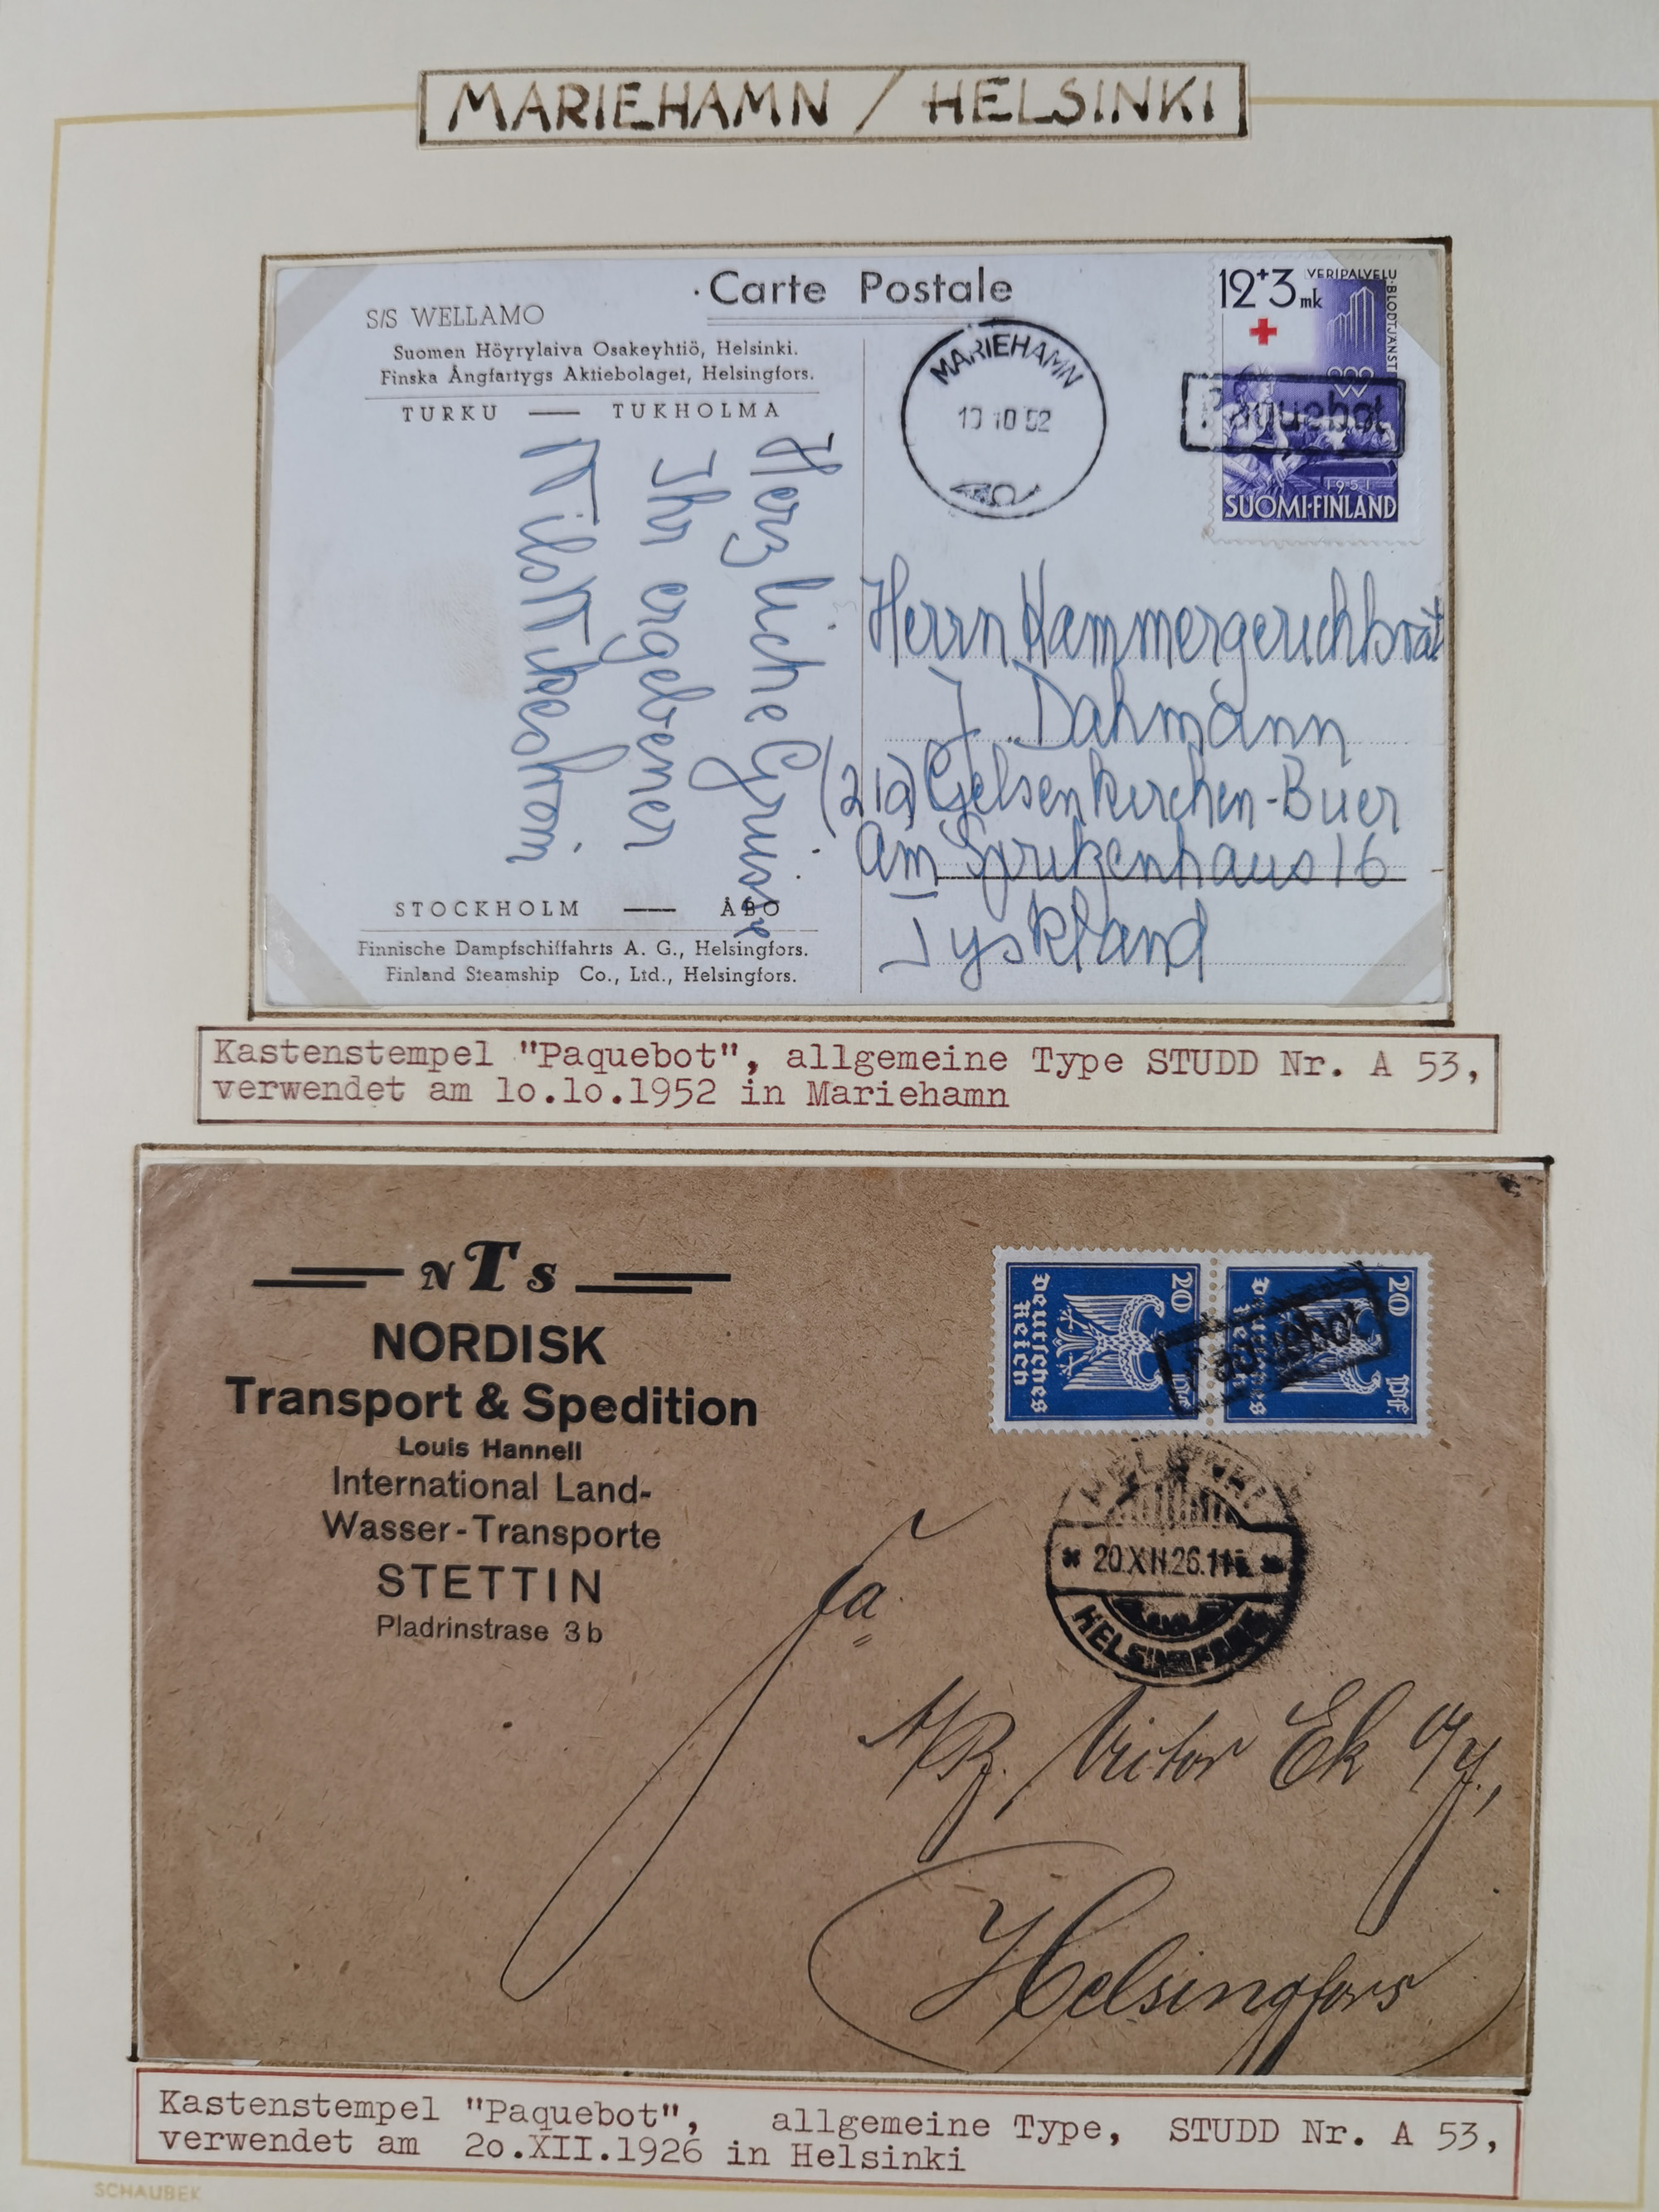 MARIEHAMN / HELSINKI
Carte Postale
S/S WELLAMO
Suomen Höyrylaiva Osakeyhtiö, Helsinki.
Finska Ångfartygs Aktiebolaget, Helsingfors.
TURKU — TUKHOLMA
Herzliche Grüsse
Ihr ergebener
STOCKHOLM — ÅBO
Finnische Dampfschiffahrts A. G., Helsingfors.
Finland Steamship Co., Ltd., Helsingfors.
MARIEHAMN
10 10 52
12+3 mk
VERIPALVELU·BLODTJÄNST
Paquebot
1951
SUOMI-FINLAND
Herrn Kammergerichtsrat
J. Dahmann
(21a) Gelsenkirchen-Buer
Am Spritzenhaus 16
Tyskland
Kastenstempel "Paquebot", allgemeine Type STUDD Nr. A 53,
verwendet am 1o.1o.1952 in Mariehamn
NTs
NORDISK
Transport & Spedition
Louis Hannell
International Land-
Wasser-Transporte
STETTIN
Pladrinstrasse 3b
Deutsches Reich 20 Pf.
Deutsches Reich 20 Pf.
Paquebot
HELSINKI
20.XII.26.11
HELSINGFORS
Fa
Victor Ek Oy.,
Helsingfors
Kastenstempel "Paquebot", allgemeine Type, STUDD Nr. A 53,
verwendet am 2o.XII.1926 in Helsinki
SCHAUBEK